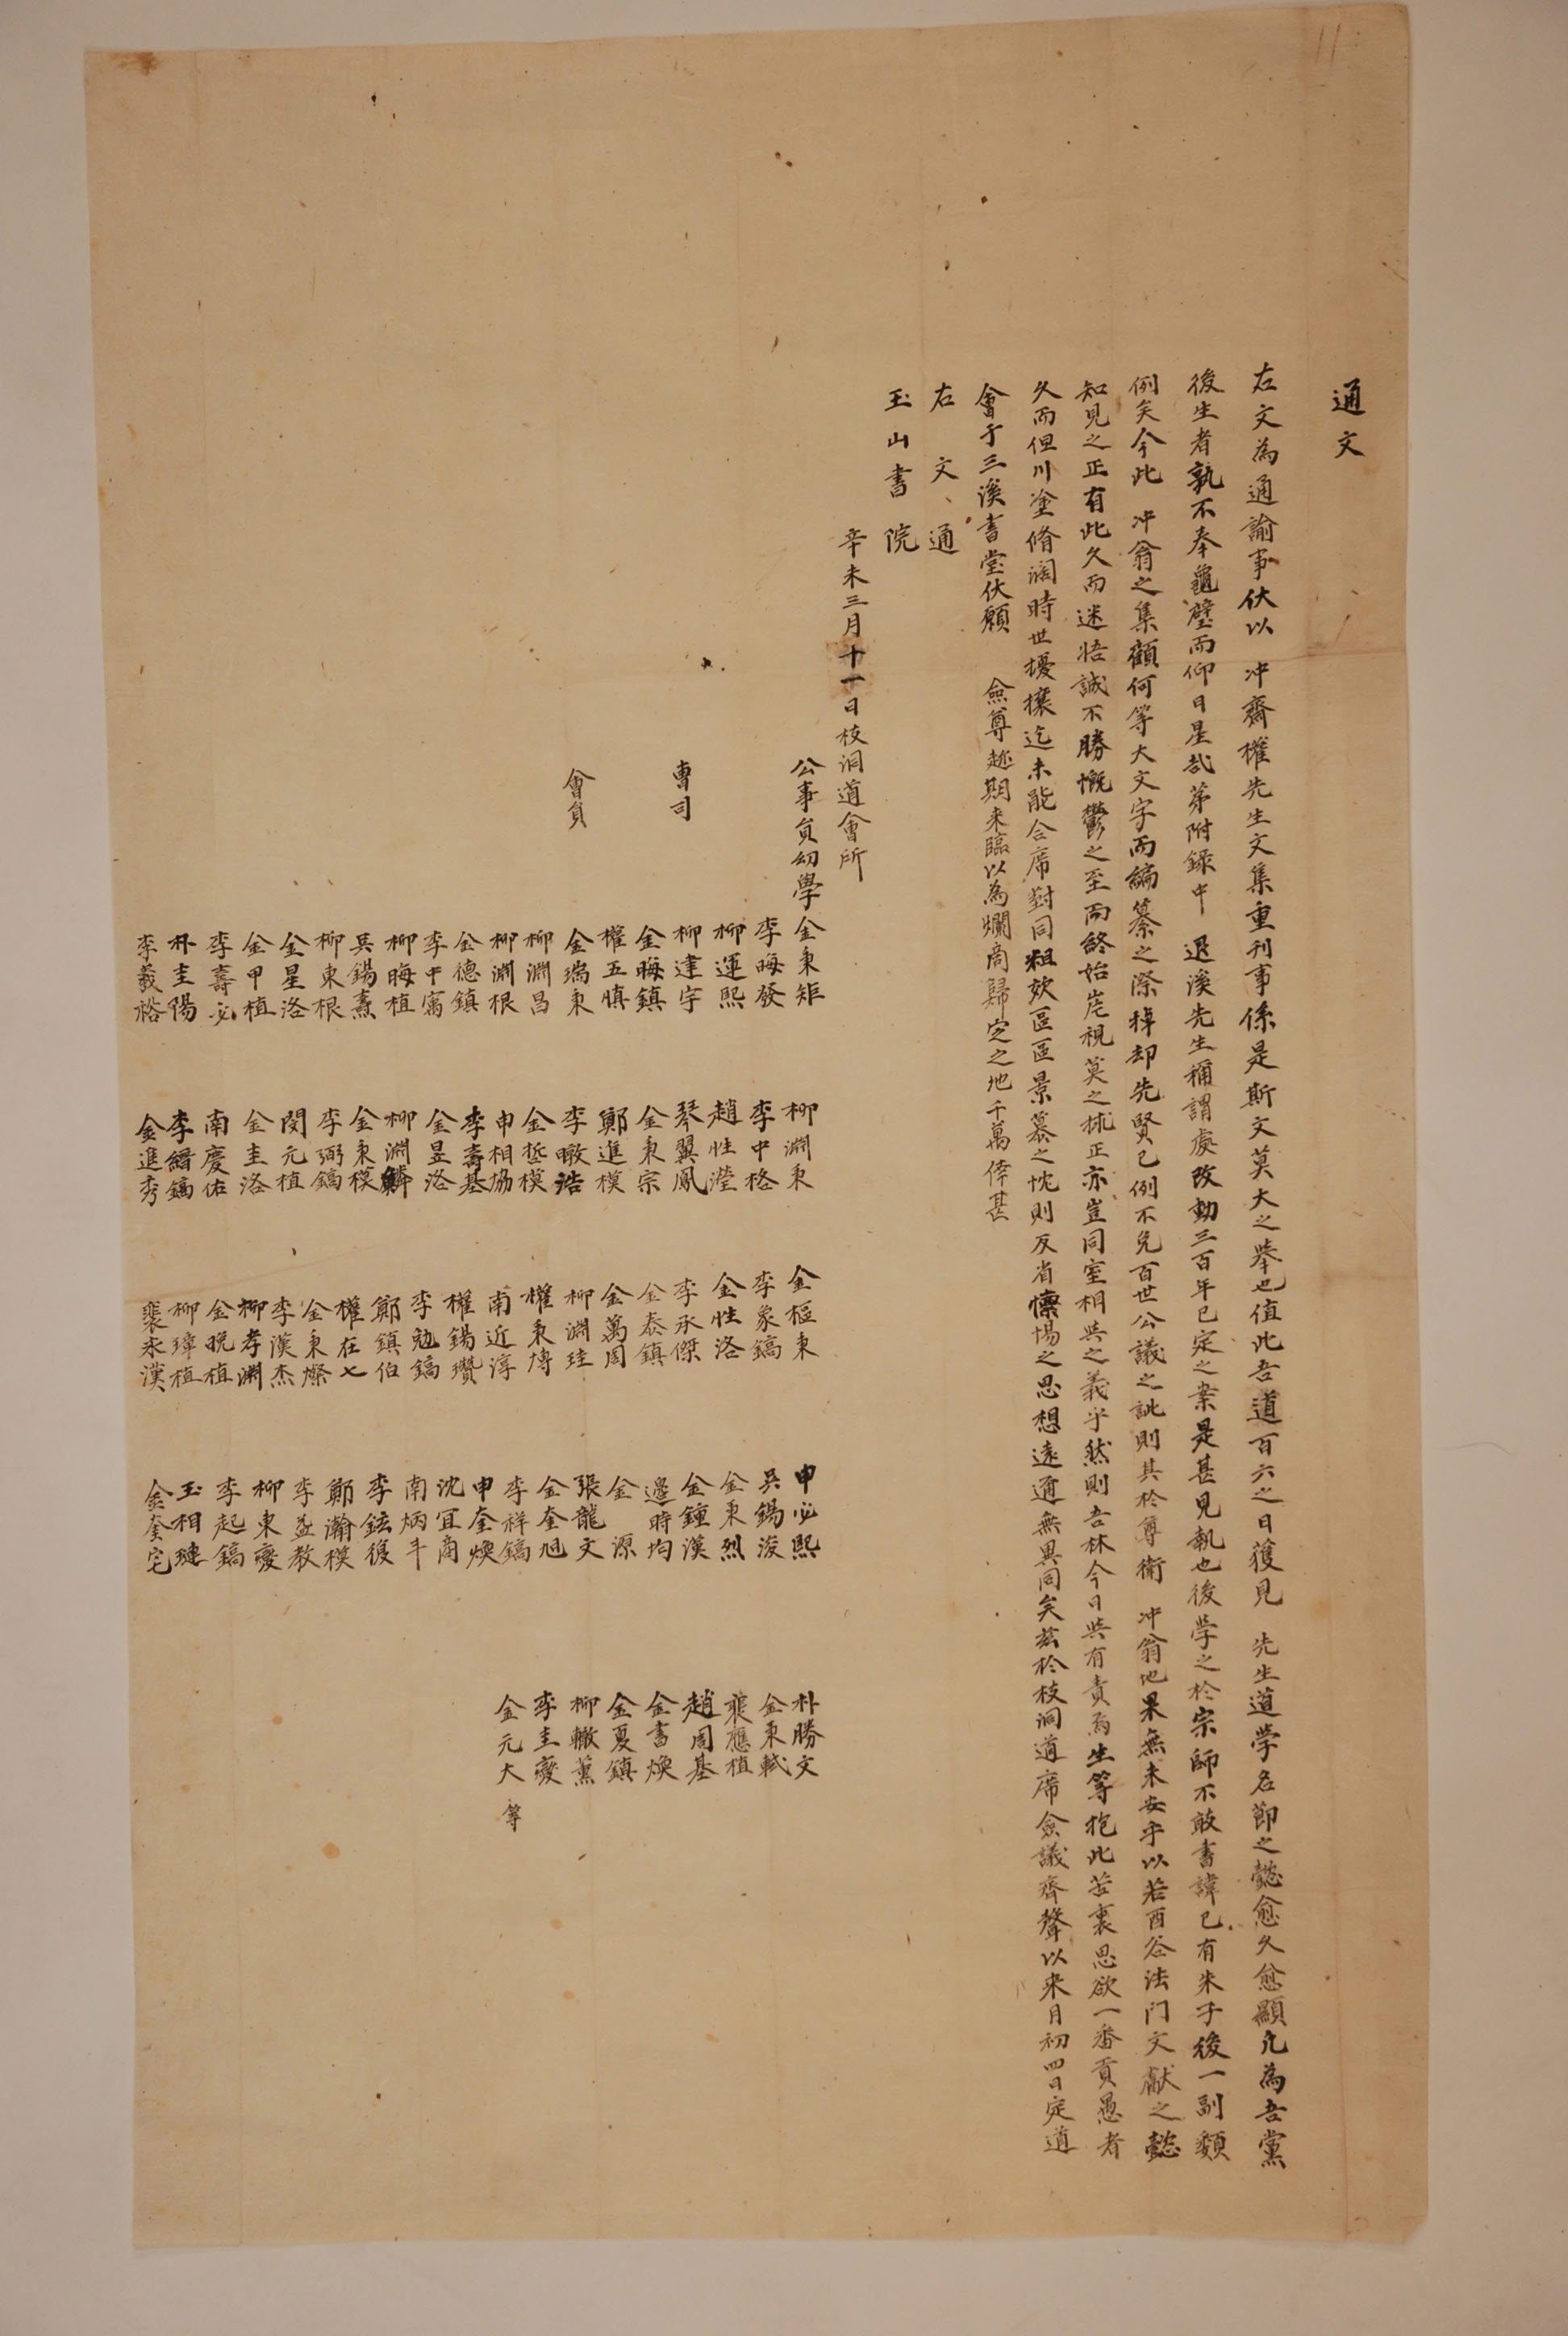 通文
右文為通諭事伏以 冲齋權先生文集重刊事係是斯文莫大之擧也值此吾道百六之日獲見 先生道學名節之懿愈久愈顯凡為吾黨
後生者孰不奉龜璧而仰日星哉第附錄中 退溪先生稱謂處改動三百年已定之案是甚見執也後學之於宗師不敢書諱已有朱子後一副類
例矣今此 冲翁之集顧何等大文字而編纂之際掉却先賢已例不免百世公議之訛則其於尊衛 冲翁地果無未安乎以若酉谷法門文獻之懿
知見之正有此久而迷悟誠不勝慨鬱之至而終始岸視莫之捄正亦豈同室相與之義乎然則吾林今日與有責焉生等抱此苦裏思欲一番貢愚者
久而但川塗脩濶時世擾攘迄未能合席對同粗效區區景慕之忱則反省懍惕之思想遠邇無異同矣玆於枝洞道席僉議齊聲以來月初四日定道
會于三溪書堂伏願 僉尊趁期來臨以為爛商歸定之地千萬倖甚
右文通
玉山書院
辛未三月十一日枝洞道會所
公事員幼學金東矩 柳淵東 金樞東 申必熙 朴勝文
李晦發 李中格 李象鎬 吳錫浚 金東軾
曹司 柳運熙 趙性瀅 金性洛 金東烈 裵應植
柳建宇 琴翼鳳 李承傑 金鍾漢 趙周基
金晦鎮 金東宗 金泰鎮 邊時均 金書煥
權五慎 鄭進模 金萬周 金源 金夏鎮
會員 金瑞東 李暾浩 柳淵珪 張龍文 柳轍薰
柳淵昌 金㙾模 權東博 金奎旭 李圭燮
柳淵根 申相協 南近淳 李祥鎬 金元大 等
金德鎮 李壽基 權錫瓚 申奎煥
李中寯 金昱洛 李勉鎬 沈宜商
柳晦植 柳淵麟 鄭鎮伯 南炳斗
吳錫熹 金東模 權在七 李鉉復
柳東根 李弼鎬 金東燦 鄭瀚模
金星洛 閔元植 李漢杰 李孟教
金甲植 金圭洛 柳孝淵 柳東燮
李壽必 南慶佑 金晚植 李起鎬
朴圭陽 李縉鎬 柳璋植 玉相璉
李羲裕 金進秀 裵永漢 金奎宅